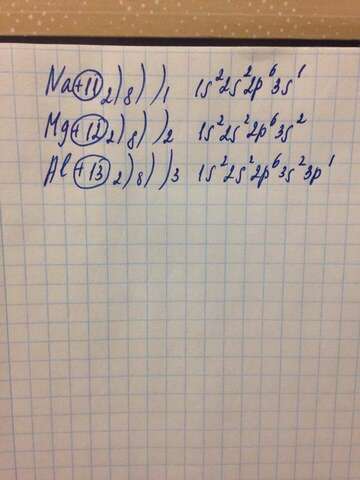 Na +11 2) 8) )1 1s²2s²2p⁶3s¹
Mg +12 2) 8) )2 1s²2s²2p⁶3s²
Al +13 2) 8) )3 1s²2s²2p⁶3s²3p¹